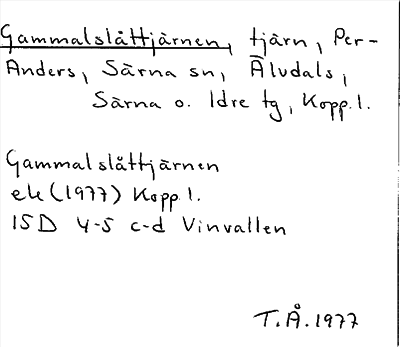 Gammalslåttjärnen, tjärn, Per-
Anders, Särna sn, Älvdals,
Särna o. Idre tg, Kopp.l.
Gammalslåttjärnen
ek (1977) Kopp.l.
15D 4-5 c-d Vinvallen
T.Å.1977